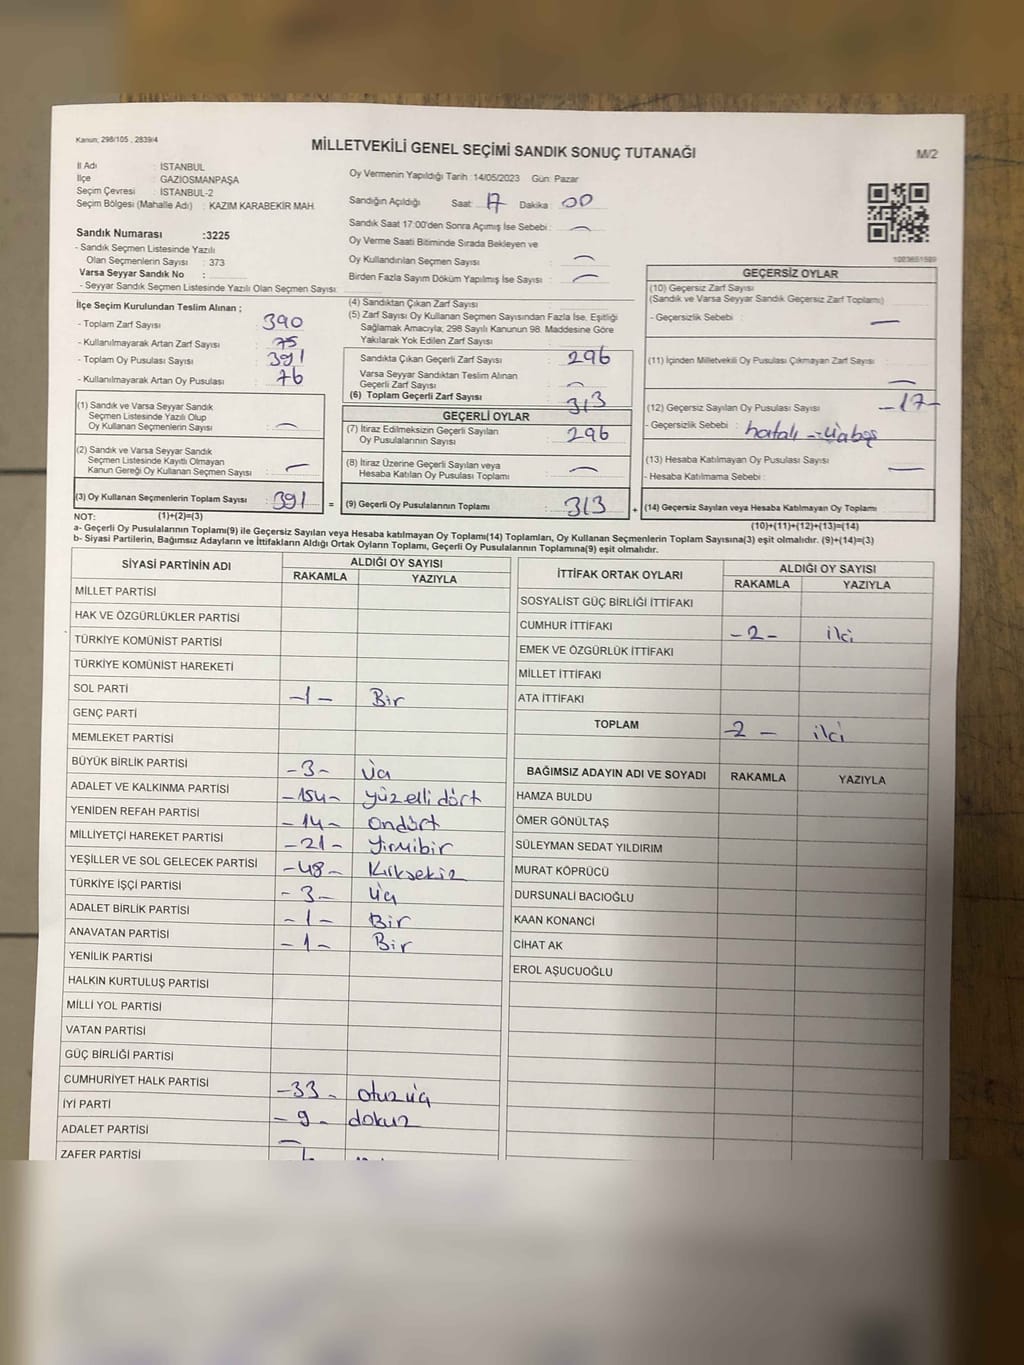 Kanun; 298/105 , 2839/4
MİLLETVEKİLİ GENEL SEÇİMİ SANDIK SONUÇ TUTANAĞI
M/2
İl Adı : İSTANBUL
İlçe : GAZİOSMANPAŞA
Seçim Çevresi : İSTANBUL-2
Seçim Bölgesi (Mahalle Adı) : KAZIM KARABEKİR MAH.
Oy Vermenin Yapıldığı Tarih :14/05/2023 Gün: Pazar
Sandığın Açıldığı Saat: 17 Dakika 00
Sandık Saat 17:00'den Sonra Açımış İse Sebebi : —
Oy Verme Saati Bitiminde Sırada Bekleyen ve
Oy Kullandırılan Seçmen Sayısı : —
Birden Fazla Sayım Döküm Yapılmış İse Sayısı : —
Sandık Numarası :3225
- Sandık Seçmen Listesinde Yazılı
Olan Seçmenlerin Sayısı : 373
Varsa Seyyar Sandık No :
- Seyyar Sandık Seçmen Listesinde Yazılı Olan Seçmen Sayısı:
İlçe Seçim Kurulundan Teslim Alınan ;
- Toplam Zarf Sayısı : 390
- Kullanılmayarak Artan Zarf Sayısı : 75
- Toplam Oy Pusulası Sayısı : 391
- Kullanılmayarak Artan Oy Pusulası : 76
(1) Sandık ve Varsa Seyyar Sandık
Seçmen Listesinde Yazılı Olup
Oy Kullanan Seçmenlerin Sayısı : —
(2) Sandık ve Varsa Seyyar Sandık
Seçmen Listesinde Kayıtlı Olmayan
Kanun Gereği Oy Kullanan Seçmen Sayısı : —
(3) Oy Kullanan Seçmenlerin Toplam Sayısı : 391 =
(4) Sandıktan Çıkan Zarf Sayısı :
(5) Zarf Sayısı Oy Kullanan Seçmen Sayısından Fazla İse, Eşitliği
Sağlamak Amacıyla; 298 Sayılı Kanunun 98. Maddesine Göre
Yakılarak Yok Edilen Zarf Sayısı :
Sandıkta Çıkan Geçerli Zarf Sayısı : 296
Varsa Seyyar Sandıktan Teslim Alınan
Geçerli Zarf Sayısı : —
(6) Toplam Geçerli Zarf Sayısı : 313
GEÇERLİ OYLAR
(7) İtiraz Edilmeksizin Geçerli Sayılan
Oy Pusulalarının Sayısı : 296
(8) İtiraz Üzerine Geçerli Sayılan veya
Hesaba Katılan Oy Pusulası Toplamı : —
(9) Geçerli Oy Pusulalarının Toplamı : 313 +
1003651509
GEÇERSİZ OYLAR
(10) Geçersiz Zarf Sayısı
(Sandık ve Varsa Seyyar Sandık Geçersiz Zarf Toplamı) :
- Geçersizlik Sebebi : —
(11) İçinden Milletvekili Oy Pusulası Çıkmayan Zarf Sayısı : —
(12) Geçersiz Sayılan Oy Pusulası Sayısı : -17-
- Geçersizlik Sebebi : hatalı
(13) Hesaba Katılmayan Oy Pusulası Sayısı : —
- Hesaba Katılmama Sebebi :
(14) Geçersiz Sayılan veya Hesaba Katılmayan Oy Toplamı :
NOT: (1)+(2)=(3)
(10)+(11)+(12)+(13)=(14)
a- Geçerli Oy Pusulalarının Toplamı(9) ile Geçersiz Sayılan veya Hesaba katılmayan Oy Toplamı(14) Toplamları, Oy Kullanan Seçmenlerin Toplam Sayısına(3) eşit olmalıdır. (9)+(14)=(3)
b- Siyasi Partilerin, Bağımsız Adayların ve İttifakların Aldığı Ortak Oyların Toplamı, Geçerli Oy Pusulalarının Toplamına(9) eşit olmalıdır.
SİYASİ PARTİNİN ADI ALDIĞI OY SAYISI
RAKAMLA YAZIYLA
MİLLET PARTİSİ
HAK VE ÖZGÜRLÜKLER PARTİSİ
TÜRKİYE KOMÜNİST PARTİSİ
TÜRKİYE KOMÜNİST HAREKETİ
SOL PARTİ -1- Bir
GENÇ PARTİ
MEMLEKET PARTİSİ
BÜYÜK BİRLİK PARTİSİ -3- üç
ADALET VE KALKINMA PARTİSİ -154- yüzellidört
YENİDEN REFAH PARTİSİ -14- Ondört
MİLLİYETÇİ HAREKET PARTİSİ -21- yirmibir
YEŞİLLER VE SOL GELECEK PARTİSİ -48- Kırksekiz
TÜRKİYE İŞÇİ PARTİSİ -3- üç
ADALET BİRLİK PARTİSİ -1- Bir
ANAVATAN PARTİSİ -1- Bir
YENİLİK PARTİSİ
HALKIN KURTULUŞ PARTİSİ
MİLLİ YOL PARTİSİ
VATAN PARTİSİ
GÜÇ BİRLİĞİ PARTİSİ
CUMHURİYET HALK PARTİSİ -33- otuzüç
İYİ PARTİ -9- dokuz
ADALET PARTİSİ —
ZAFER PARTİSİ
İTTİFAK ORTAK OYLARI ALDIĞI OY SAYISI
RAKAMLA YAZIYLA
SOSYALİST GÜÇ BİRLİĞİ İTTİFAKI
CUMHUR İTTİFAKI -2- iki
EMEK VE ÖZGÜRLÜK İTTİFAKI
MİLLET İTTİFAKI
ATA İTTİFAKI
TOPLAM -2- iki
BAĞIMSIZ ADAYIN ADI VE SOYADI RAKAMLA YAZIYLA
HAMZA BULDU
ÖMER GÖNÜLTAŞ
SÜLEYMAN SEDAT YILDIRIM
MURAT KÖPRÜCÜ
DURSUNALİ BACIOĞLU
KAAN KONANCİ
CİHAT AK
EROL AŞUCUOĞLU